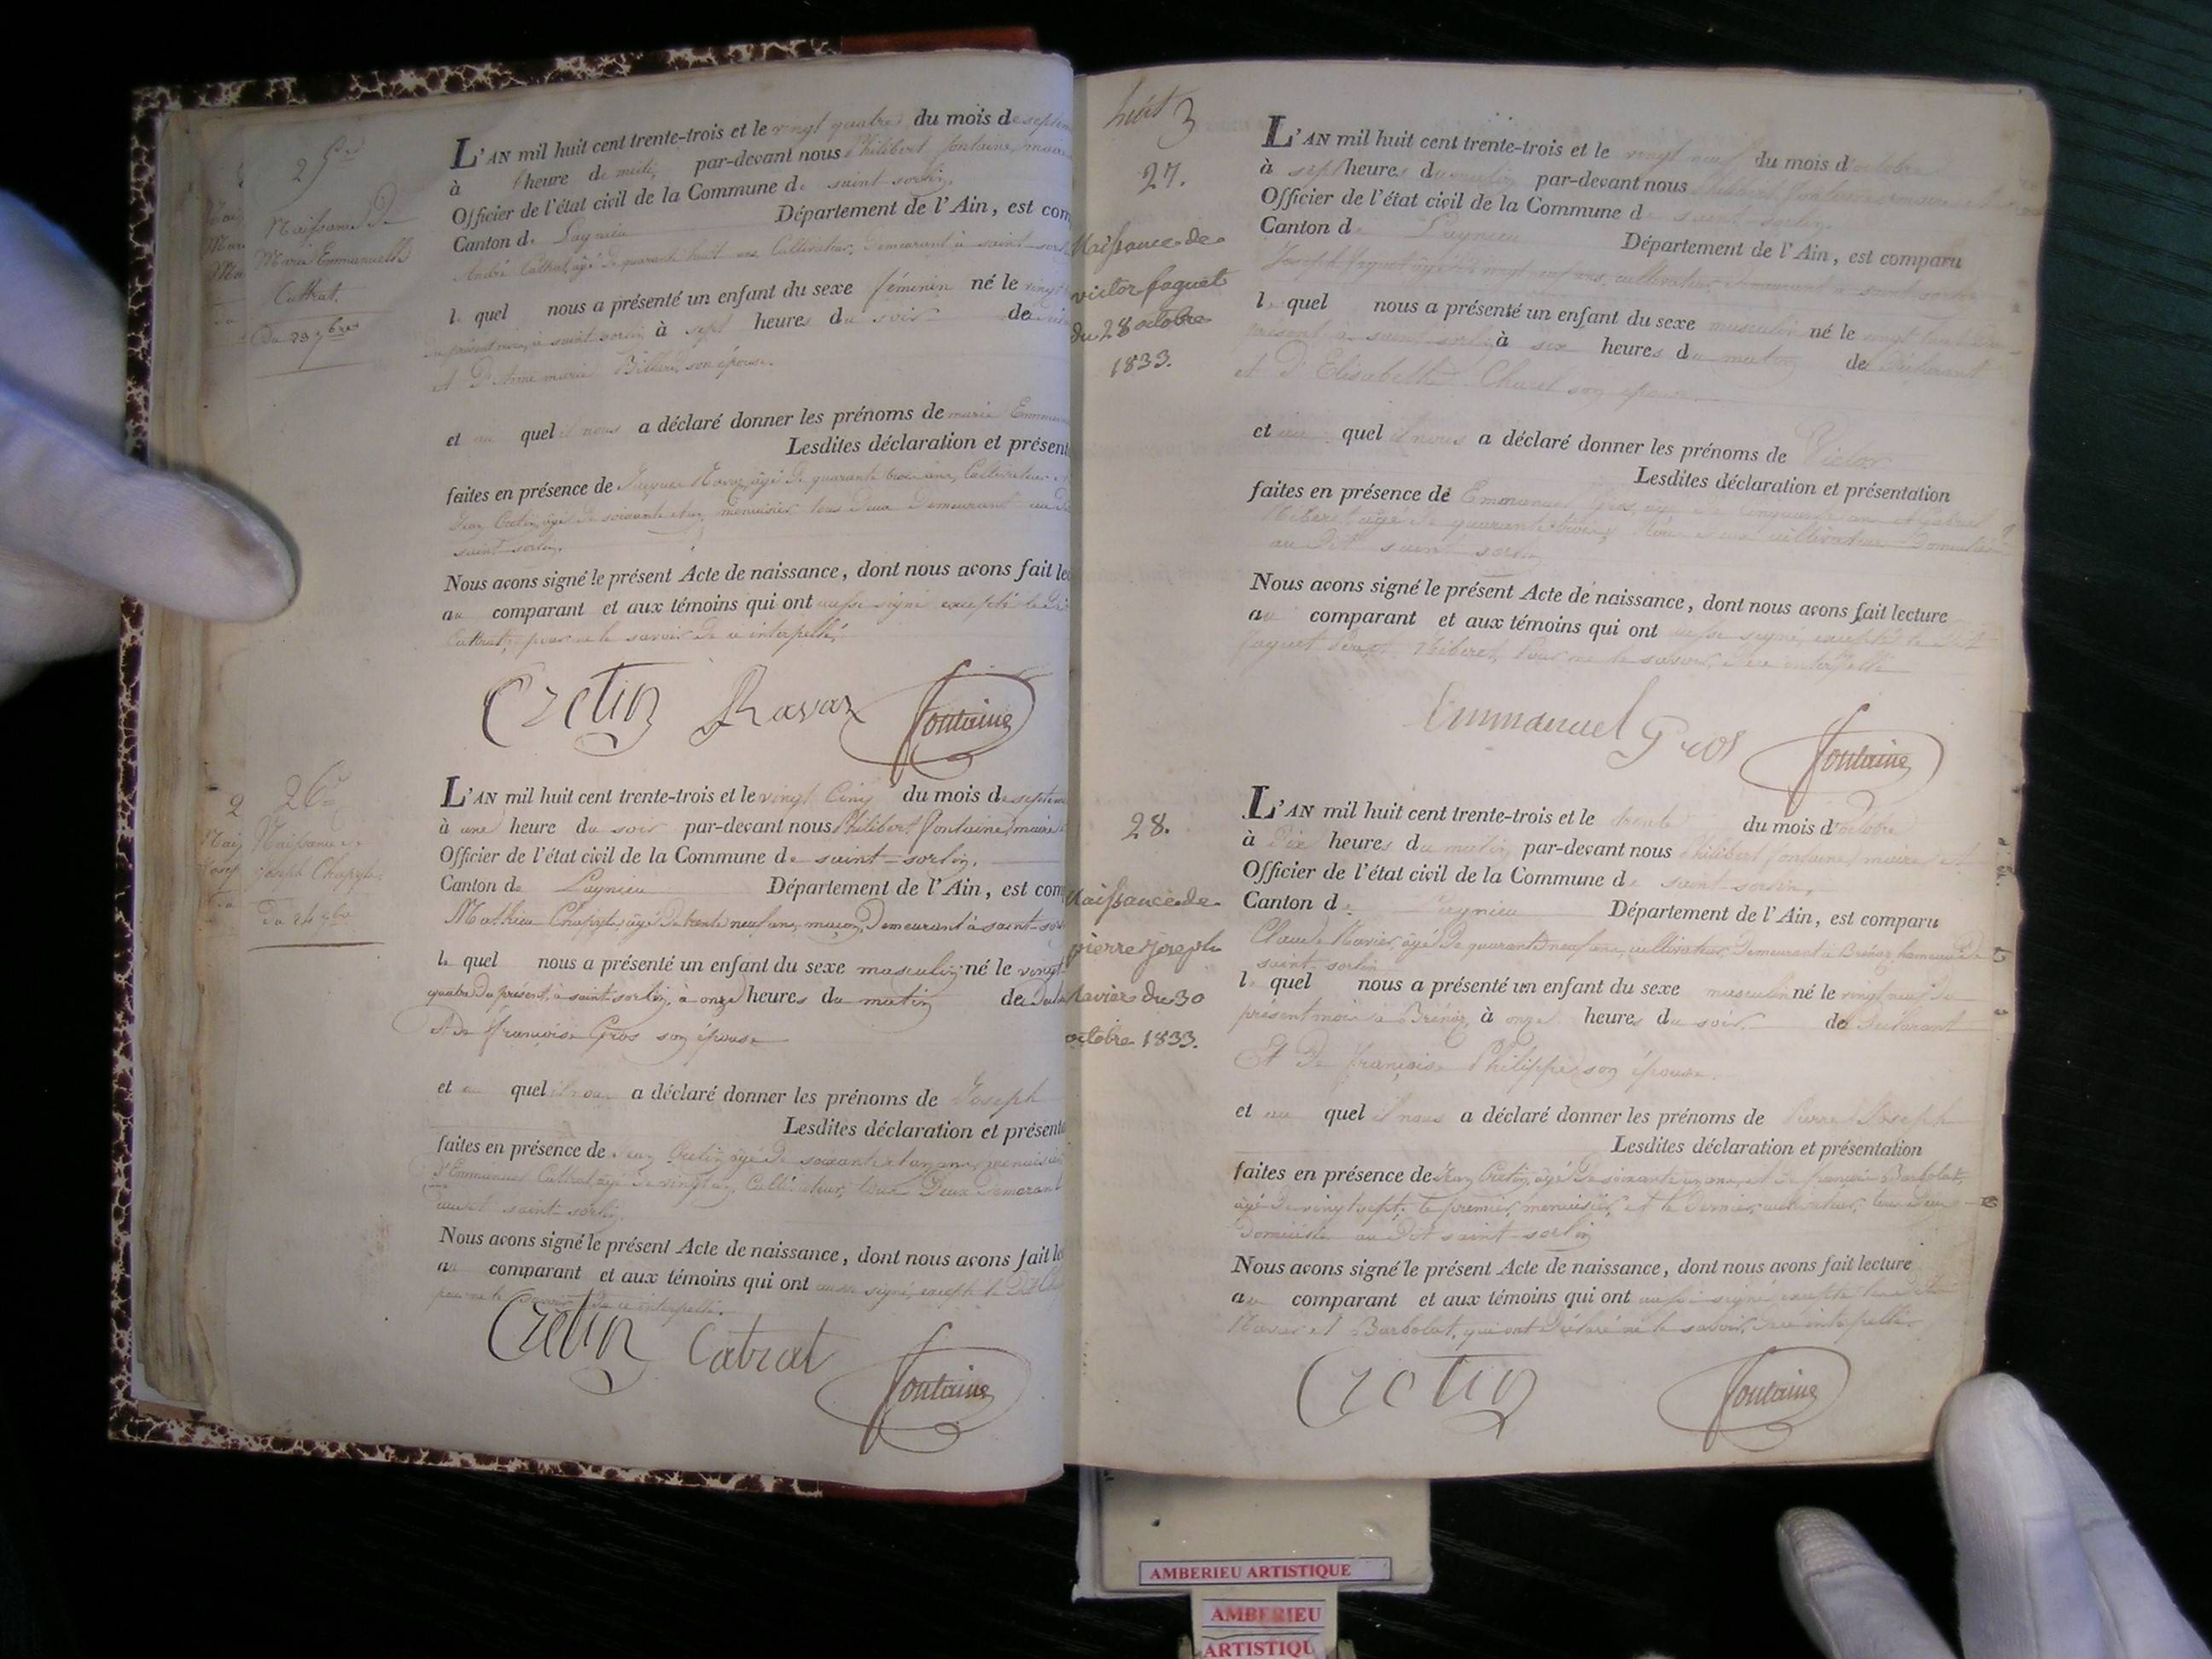 25e
Naissance de
Marie Emmanuelle
Cattrat.
Du 23 7bre
L'AN mil huit cent trente-trois et le vingt quatre du mois de septem
à heure de midi, par-devant nous Philibert fontaine, maire
Officier de l'état civil de la Commune de saint-sorlin.
Canton de Lagnieu Département de l'Ain, est com
André Cattrat, âgé de quarante huit ans, Cultivateur, Demeurant à saint-sorl
le quel nous a présenté un enfant du sexe féminin né le vingt
du présent mois, à saint-sorlin à sept heures du soir de
et De Anne marie Billard, son épouse.
et au quel il nous a déclaré donner les prénoms de marie Emmanu
Lesdites déclaration et présent
faites en présence de Jacques Ravaz, âgé de quarante trois ans, Cultivateur et
Jean Cretin, âgé de soixante et un, menuisier tous Deux Demeurant au dit
saint-sorlin.
Nous avons signé le présent Acte de naissance, dont nous avons fait le
au comparant et aux témoins qui ont aussi signé excepté le dit
Cattrat, pour ne le savoir de ce interpellé.
Cretin Ravaz fontaine
26e
Naissance de
Joseph Chapyle
Du 24 7bre
L'AN mil huit cent trente-trois et le vingt Cinq du mois de septem
à une heure du soir par-devant nous Philibert fontaine, maire
Officier de l'état civil de la Commune de saint-sorlin.
Canton de Lagnieu Département de l'Ain, est com
Mathieu Chapyle, âgé de trente neuf ans, maçon, Demeurant à saint-sor
le quel nous a présenté un enfant du sexe masculin né le vingt
quatre du présent, à saint sorlin, à onze heures du matin de
et de françoise Gros son épouse
et au quel il nous a déclaré donner les prénoms de Joseph
Lesdites déclaration et présenta
faites en présence de Jean Cretin, âgé de soixante et un ans, menuisier
d'Emmanuel Cattrat, âgé de vingt Cultivateur, tous Deux Demeurant
audit saint-sorlin.
Nous avons signé le présent Acte de naissance, dont nous avons fait le
au comparant et aux témoins qui ont aussi signé, excepté le Dit Cha
pour ne le savoir de ce interpellé.
Cretin Catrat fontaine
huit
27.
Naissance de
victor faguet
du 28 octobre
1833.
L'AN mil huit cent trente-trois et le vingt neuf du mois d'octobre
à sept heures du matin par-devant nous Philibert fontaine, maire
Officier de l'état civil de la Commune de saint-sorlin.
Canton de Lagnieu Département de l'Ain, est comparu
Joseph faguet âgé de vingt neuf ans, cultivateur, demeurant à saint-sorlin
le quel nous a présenté un enfant du sexe masculin né le vingt huit du
présent à saint-sorlin, à six heures du matin de déclarant
et D'Elisabeth Churet son épouse.
et au quel il nous a déclaré donner les prénoms de Victor
Lesdites déclaration et présentation
faites en présence de Emmanuel Gros, âgé de cinquante ans et Gabriel
Ribert âgé de quarante trois, tous deux cultivateurs Domiciliés
au Dit saint sorlin
Nous avons signé le présent Acte de naissance, dont nous avons fait lecture
au comparant et aux témoins qui ont aussi signé, excepté le dit
faguet Ribert, pour ne le savoir, de ce interpellé
Emmanuel Gros fontaine
28.
Naissance de
pierre joseph
Ravier du 30
octobre 1833.
L'AN mil huit cent trente-trois et le trente du mois d'octobre
à Dix heures du matin par-devant nous Philibert fontaine, maire et
Officier de l'état civil de la Commune de saint-sorlin,
Canton de Lagnieu Département de l'Ain, est comparu
Claude Ravier, âgé de quarante neuf ans, cultivateur, Demeurant à Brénaz, hameau de
saint-sorlin
le quel nous a présenté un enfant du sexe masculin né le vingt neuf du
présent mois à Brénaz, à onze heures du soir. de déclarant
et De françoise Philippe son épouse.
et au quel il nous a déclaré donner les prénoms de Pierre Joseph
Lesdites déclaration et présentation
faites en présence de Jean Cretin, âgé de soixante un ans, et de françois Barbolat,
âgé de vingt sept, le premier, menuisier, et le Dernier, cultivateur, tous Deux
Domiciliés au Dit saint-sorlin
Nous avons signé le présent Acte de naissance, dont nous avons fait lecture
au comparant et aux témoins qui ont aussi signé excepté les dits
Ravier et Barbolat, qui ont déclaré ne le savoir, de ce interpellé.
Cretin fontaine
AMBERIEU ARTISTIQUE
AMBERIEU
ARTISTIQU